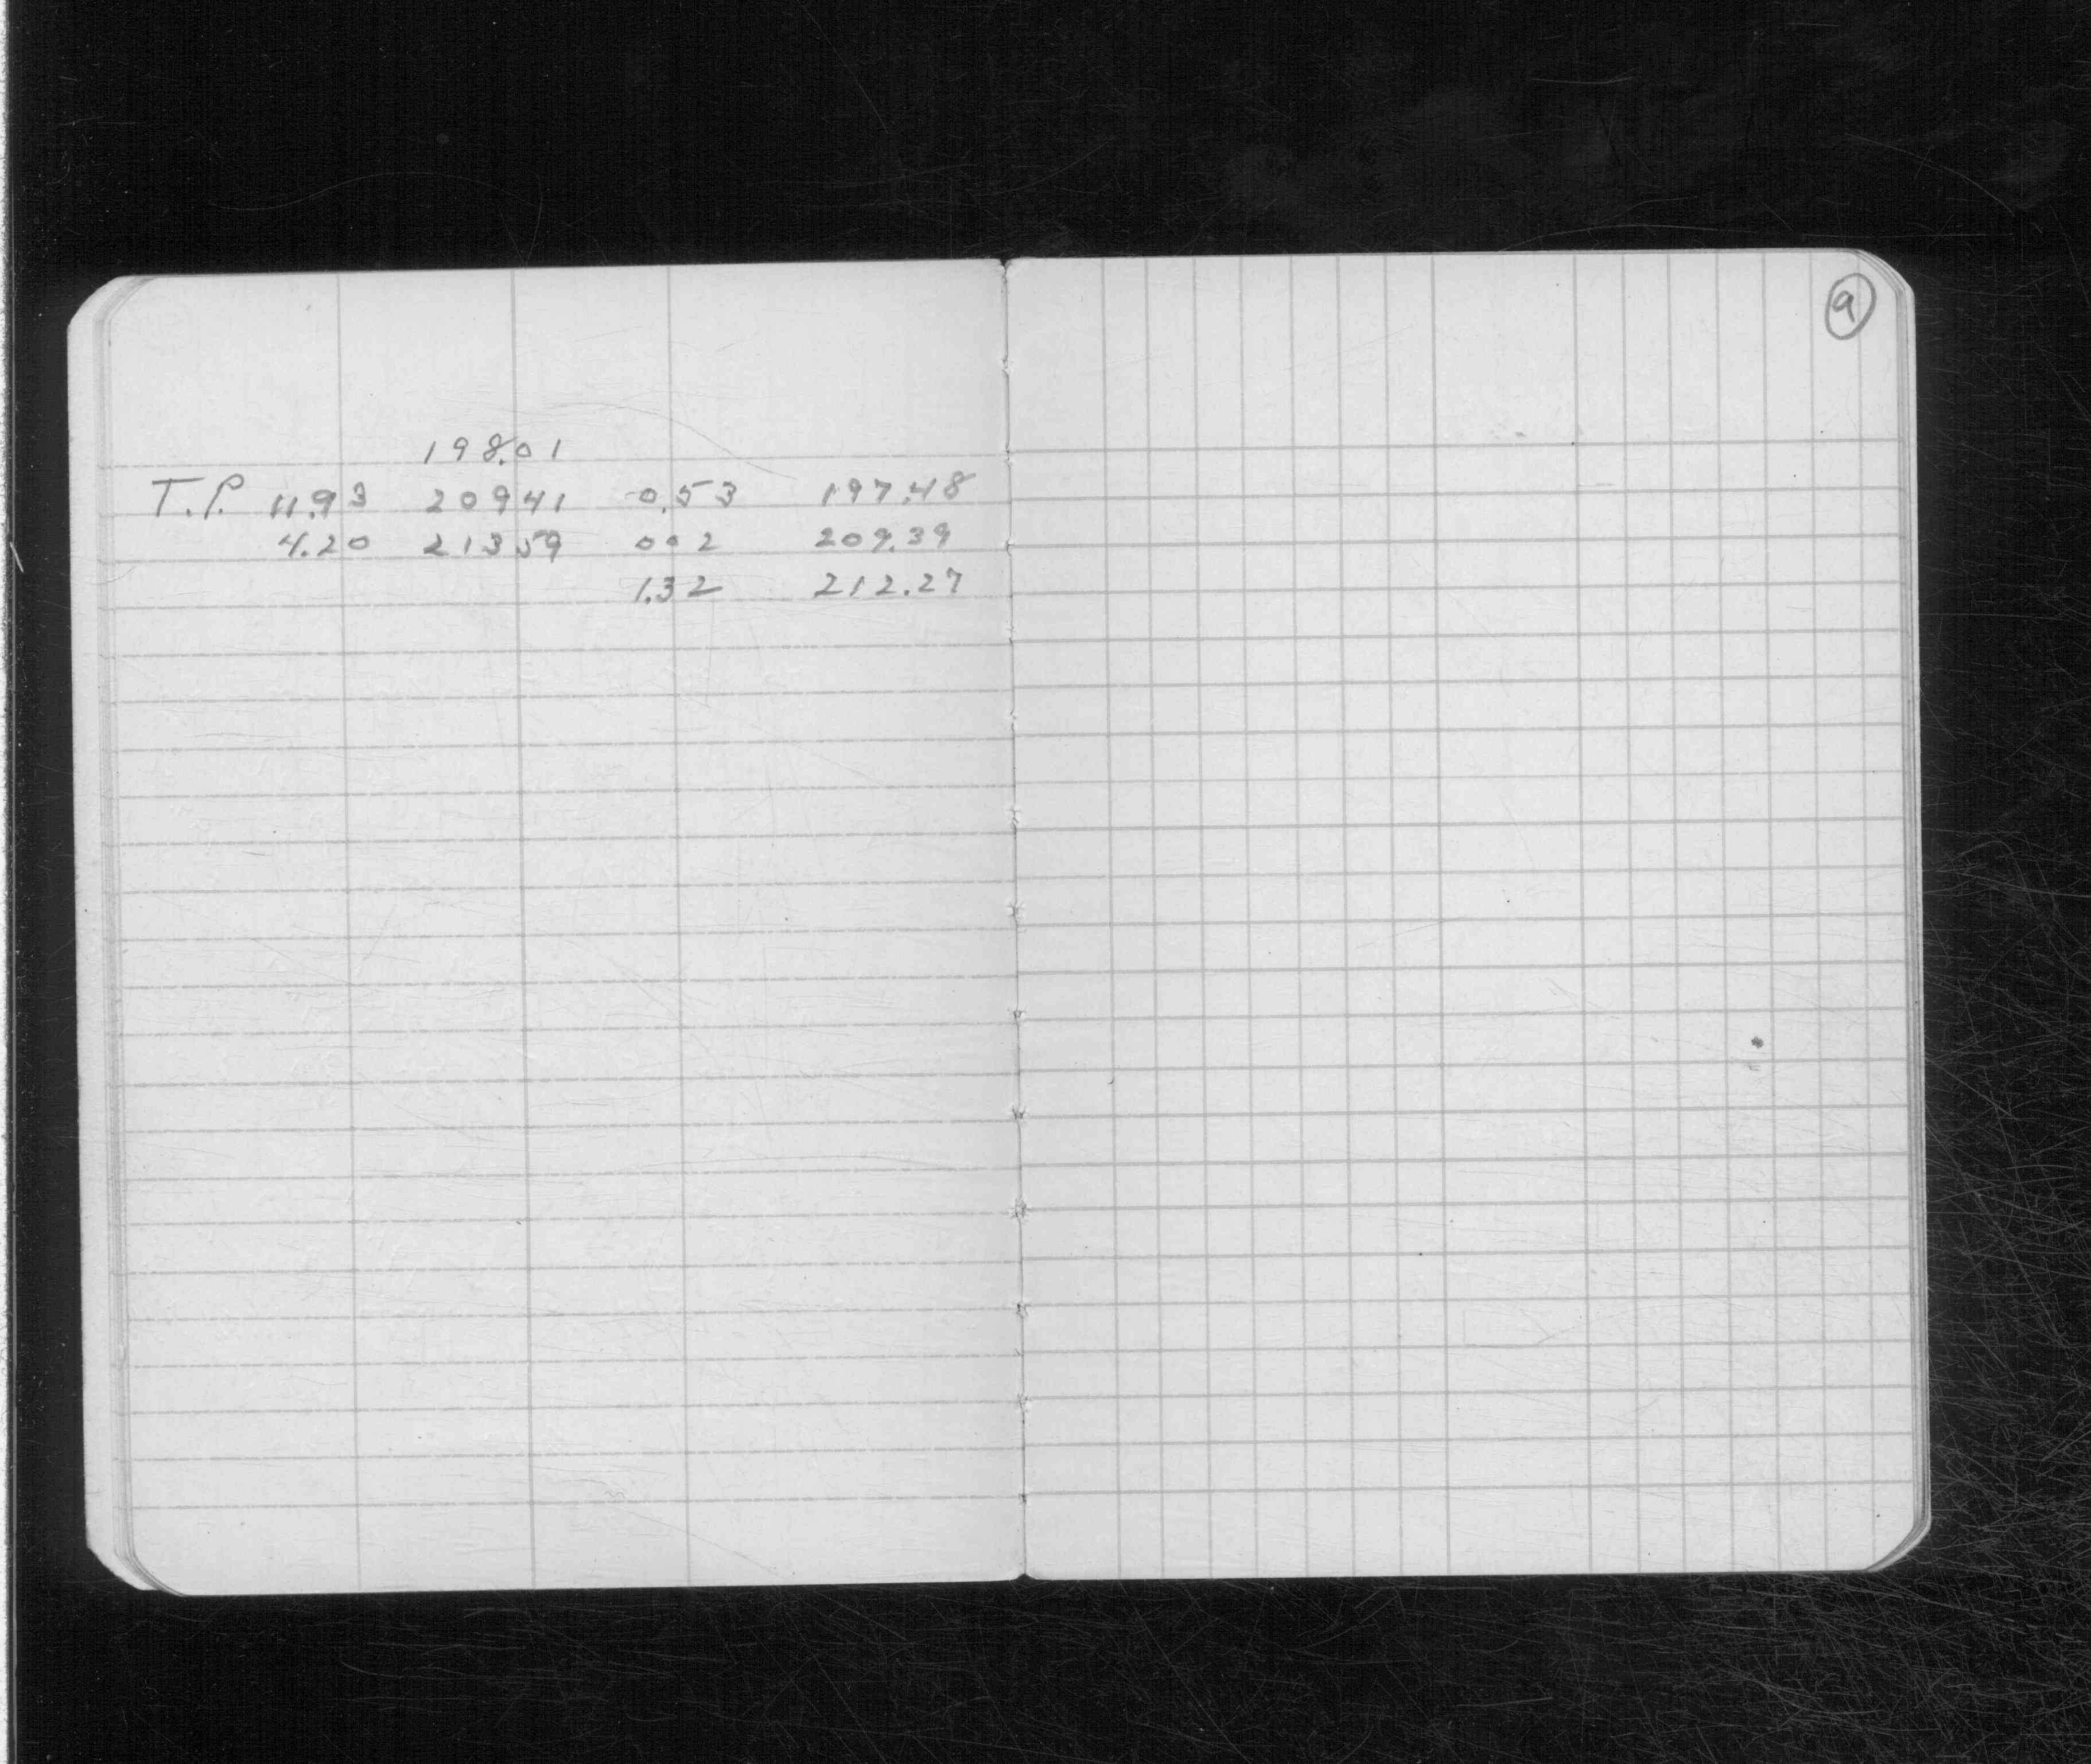 9
198.01
T.P. 11.93 20941 0.53 197.48
4.20 21359 002 209.39
1.32 212.27